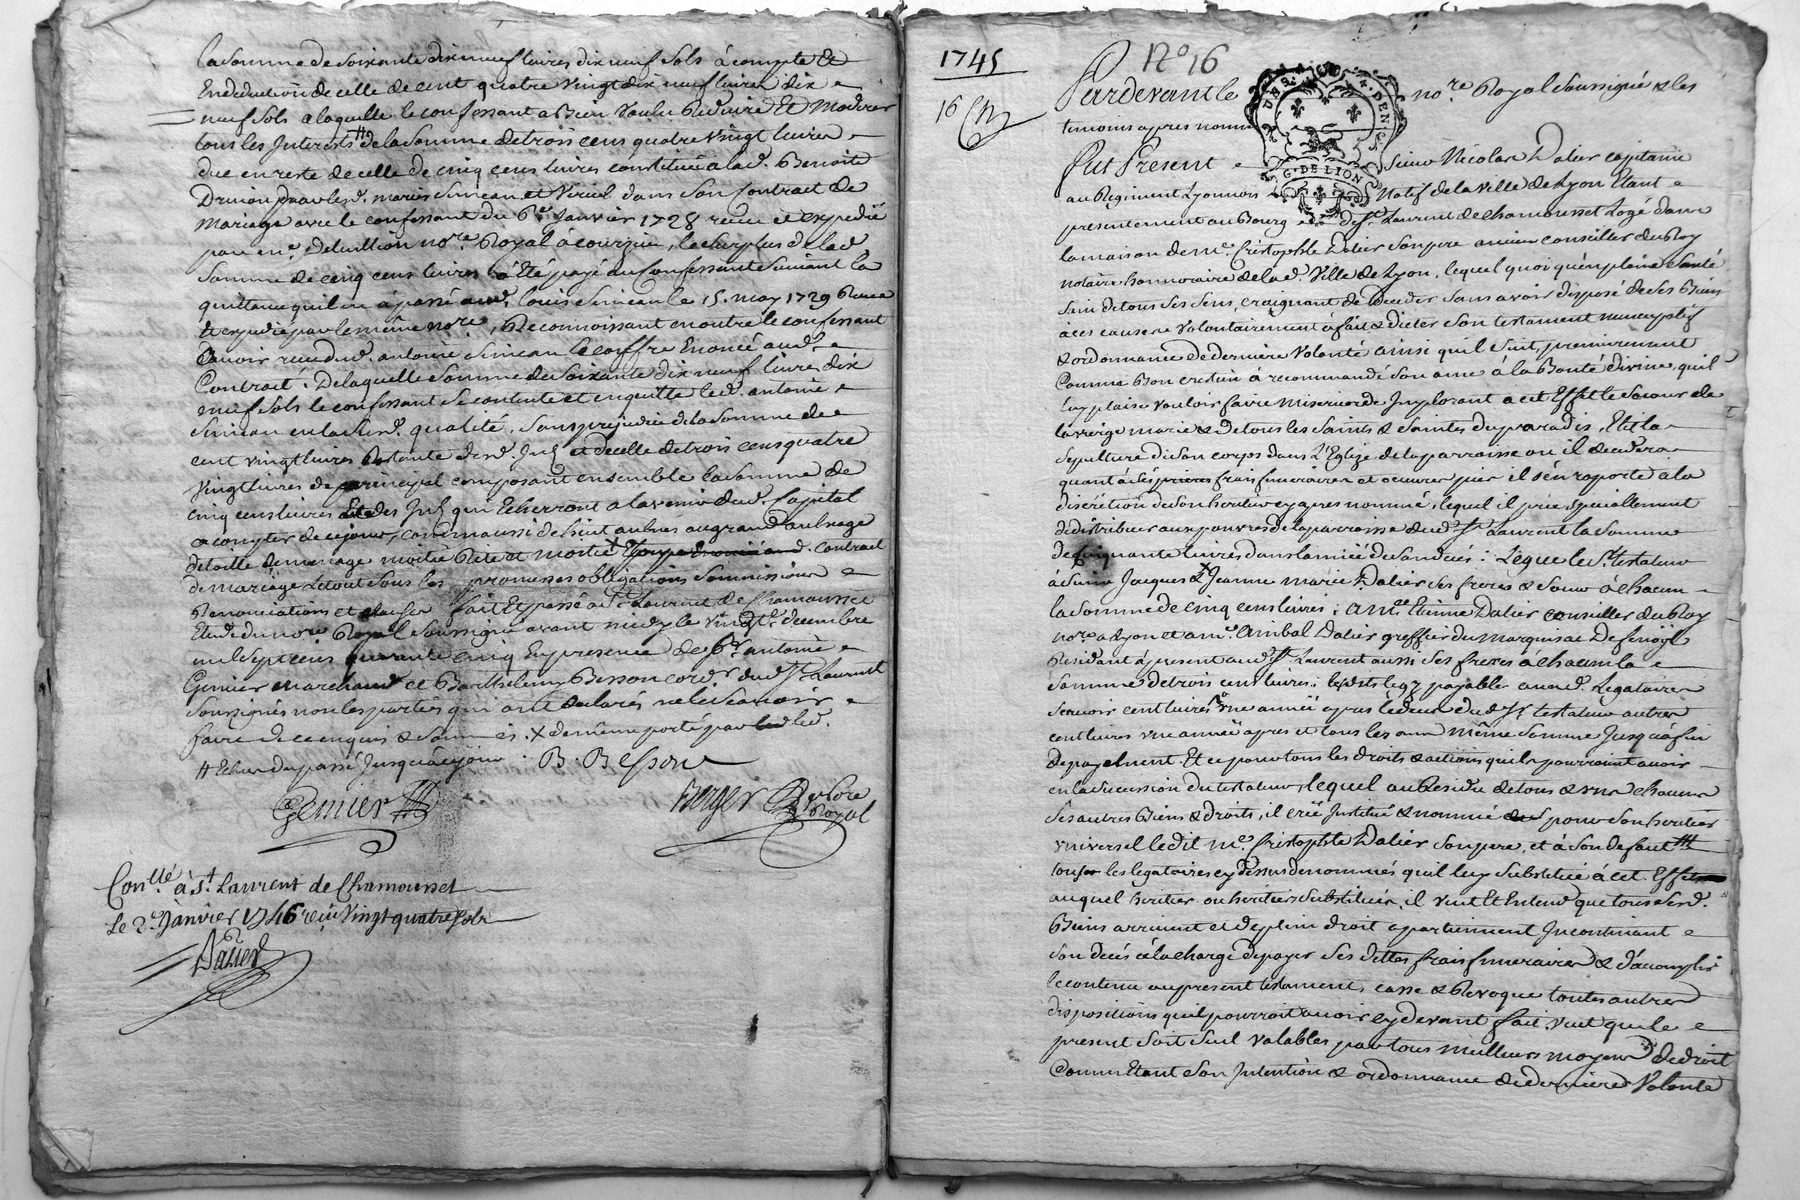 la Somme de Soixante dix neuf livres dix neuf Sols à compte et
En deduction de celle de cent quatre vingt dix neuf livres dix
neuf Sols a laquelle le confessant a Bien voulu Reduire Et Moderer
tous les Interests # de la Somme de trois cens quatre vingt livres
due en reste de celle de cinq cens livres constituée a lad. Benoite
par lesd. mariés Simean et Viriel dans Son Contrat de
Mariage avec le confessant du 6e. Janvier 1728 receu et expedié
par me. notre. Royal à courzieu, le Surplus de lad
Somme de cinq cens livres à Eté payé au Confessant Suivant la
quittance quil en à passé aud. louis Simean le 15. may 1729 Receu
et expedié par le même nore, Reconnoissant en outre le confessant
davoir receu dud. antoine Simean le coffre Enoncé aud.
Contract ; De laquelle Somme de Soixante dix neuf livres dix
neuf Sols le confessant Se contente et en quitte led. antoine
Simean en lad. qualité, Sans prejudice de la Somme de
cent vingt livres Restante desd. Jnts et de celle de trois cens quatre
vingt livres de principal composant ensemble la Somme de
cinq cens livres Et des Jnts qui Echerront a lavenir dud. Capital
a compter de ce jour, comm aussi de huit aulnes au grand aulnage
de toille de menage moitié Rete et moitié contract
de mariage Le tout Sous les promesses obligations Soumissions
Renonciations et clauses fait Et passé a St Laurent de Chamousset
Etude du nore Royal Soussigné avant midy le vingt decembre
mil Sept cens quarante cinq En presence de Sr. antoine
Genier Marchand et Barthelemy Besson cord.r dud. St. Laurent
Soussignés non les parties qui ont declarés ne le Scavoir
faire de ce enquis & Sommés. X de même porté par led.
# Echus du passé Jusqu'à ce jour B. Besson
Genier
Berger Nore
Royal
Conllé à St. Laurent de Chamousset
Le 2e. Janvier 1746 reçu Vingt quatre Sols
Dalier
1745
16
N° 16
Pardevant le nore Royal Soussigné & les
temoins apres nommés
Fut Present Sieur Nicolas Dalier capitaine
au Regiment Lyonnois Natif de la Ville de Lyon Etant
presentement au Bourg de St. Laurent de chamousset Logé dans
la maison de me. Cristophle Dalier Son pere ancien conseiller du Roy
notaire honnoraire de lad. Ville de Lyon, lequel quoi qu'en pleine Santé
Sain de tous Ses Sens, craignant de deceder Sans avoir disposé de Ses Biens
à ces causes volontairement à fait & dicter Son testament nuncupatif
& ordonnance de derniere Volonté ainsi quil Suit, premierement
Comme Bon cretien à recommandé Son ame à la Bonté divine, quil
luy plaise vouloir faire Misericorde Implorant a cet Effet le Secours de
la vierge marie & de tous les Saints & Saintes du paradis, Elit la
Sepulture de Son corps dans L'Eglize de la parroisse ou il decedera
quant à Ses prieres frais funeraires et oeuvres pies il S'en raporte a la
discretion de Son heritier cy apres nommé, lequel il prie Specialement
de distribuer aux pauvres de la parroisse dud. St. Laurent la Somme
de cinquante livres dans lannée de Son decés ; Legue le Sr. testateur
à Sieur Jacques & Jeanne Marie Dalier Ses frere & Soeur à chacun
la Somme de cinq cens livres ; a me. Etienne Dalier conseiller du Roy
nore a Lyon et a me. Annibal Dalier greffier du Marquisat De
Residant à present aud. St. Laurent aussi Ses freres à chacun la
Somme de trois cens livres ; lesdits legz payables auxd. Legataires
Scavoir cent livres une année apres le deces dud. Sr testateur autres
cent livres une année apres et tous les ans même Somme Jusqu'a fin
de payement Et ce pour tous les droits & actions quils pourroient avoir
en la Sucession du testateur, lequel au Residu de tous & uns chacuns
Ses autres Biens & droits, il crée Institue & nomme pour Son heritier
universel ledit me. Cristophle Dalier Son pere, et à Son defaut
tous les legataires cy dessus denommés quil luy Substitue à cet Effet
auquel heritier ou heritiers Substitués, il veut Et Entend que tous Sesd.
Biens arrivent et de plein droit apartiennent Jncontinent
Son decés à la charge de payer Ses dettes frais funeraires & d'acomplir
le contenu au present testament, casse & Revoque toutes autres
dispositions quil pourroit avoir cy devant fait, veut que le
present Soit Seul valables par tous meilleurs moyens de droit
Comm Etant Son Jntention & ordonnance de derniere Volonté
G. DE LION